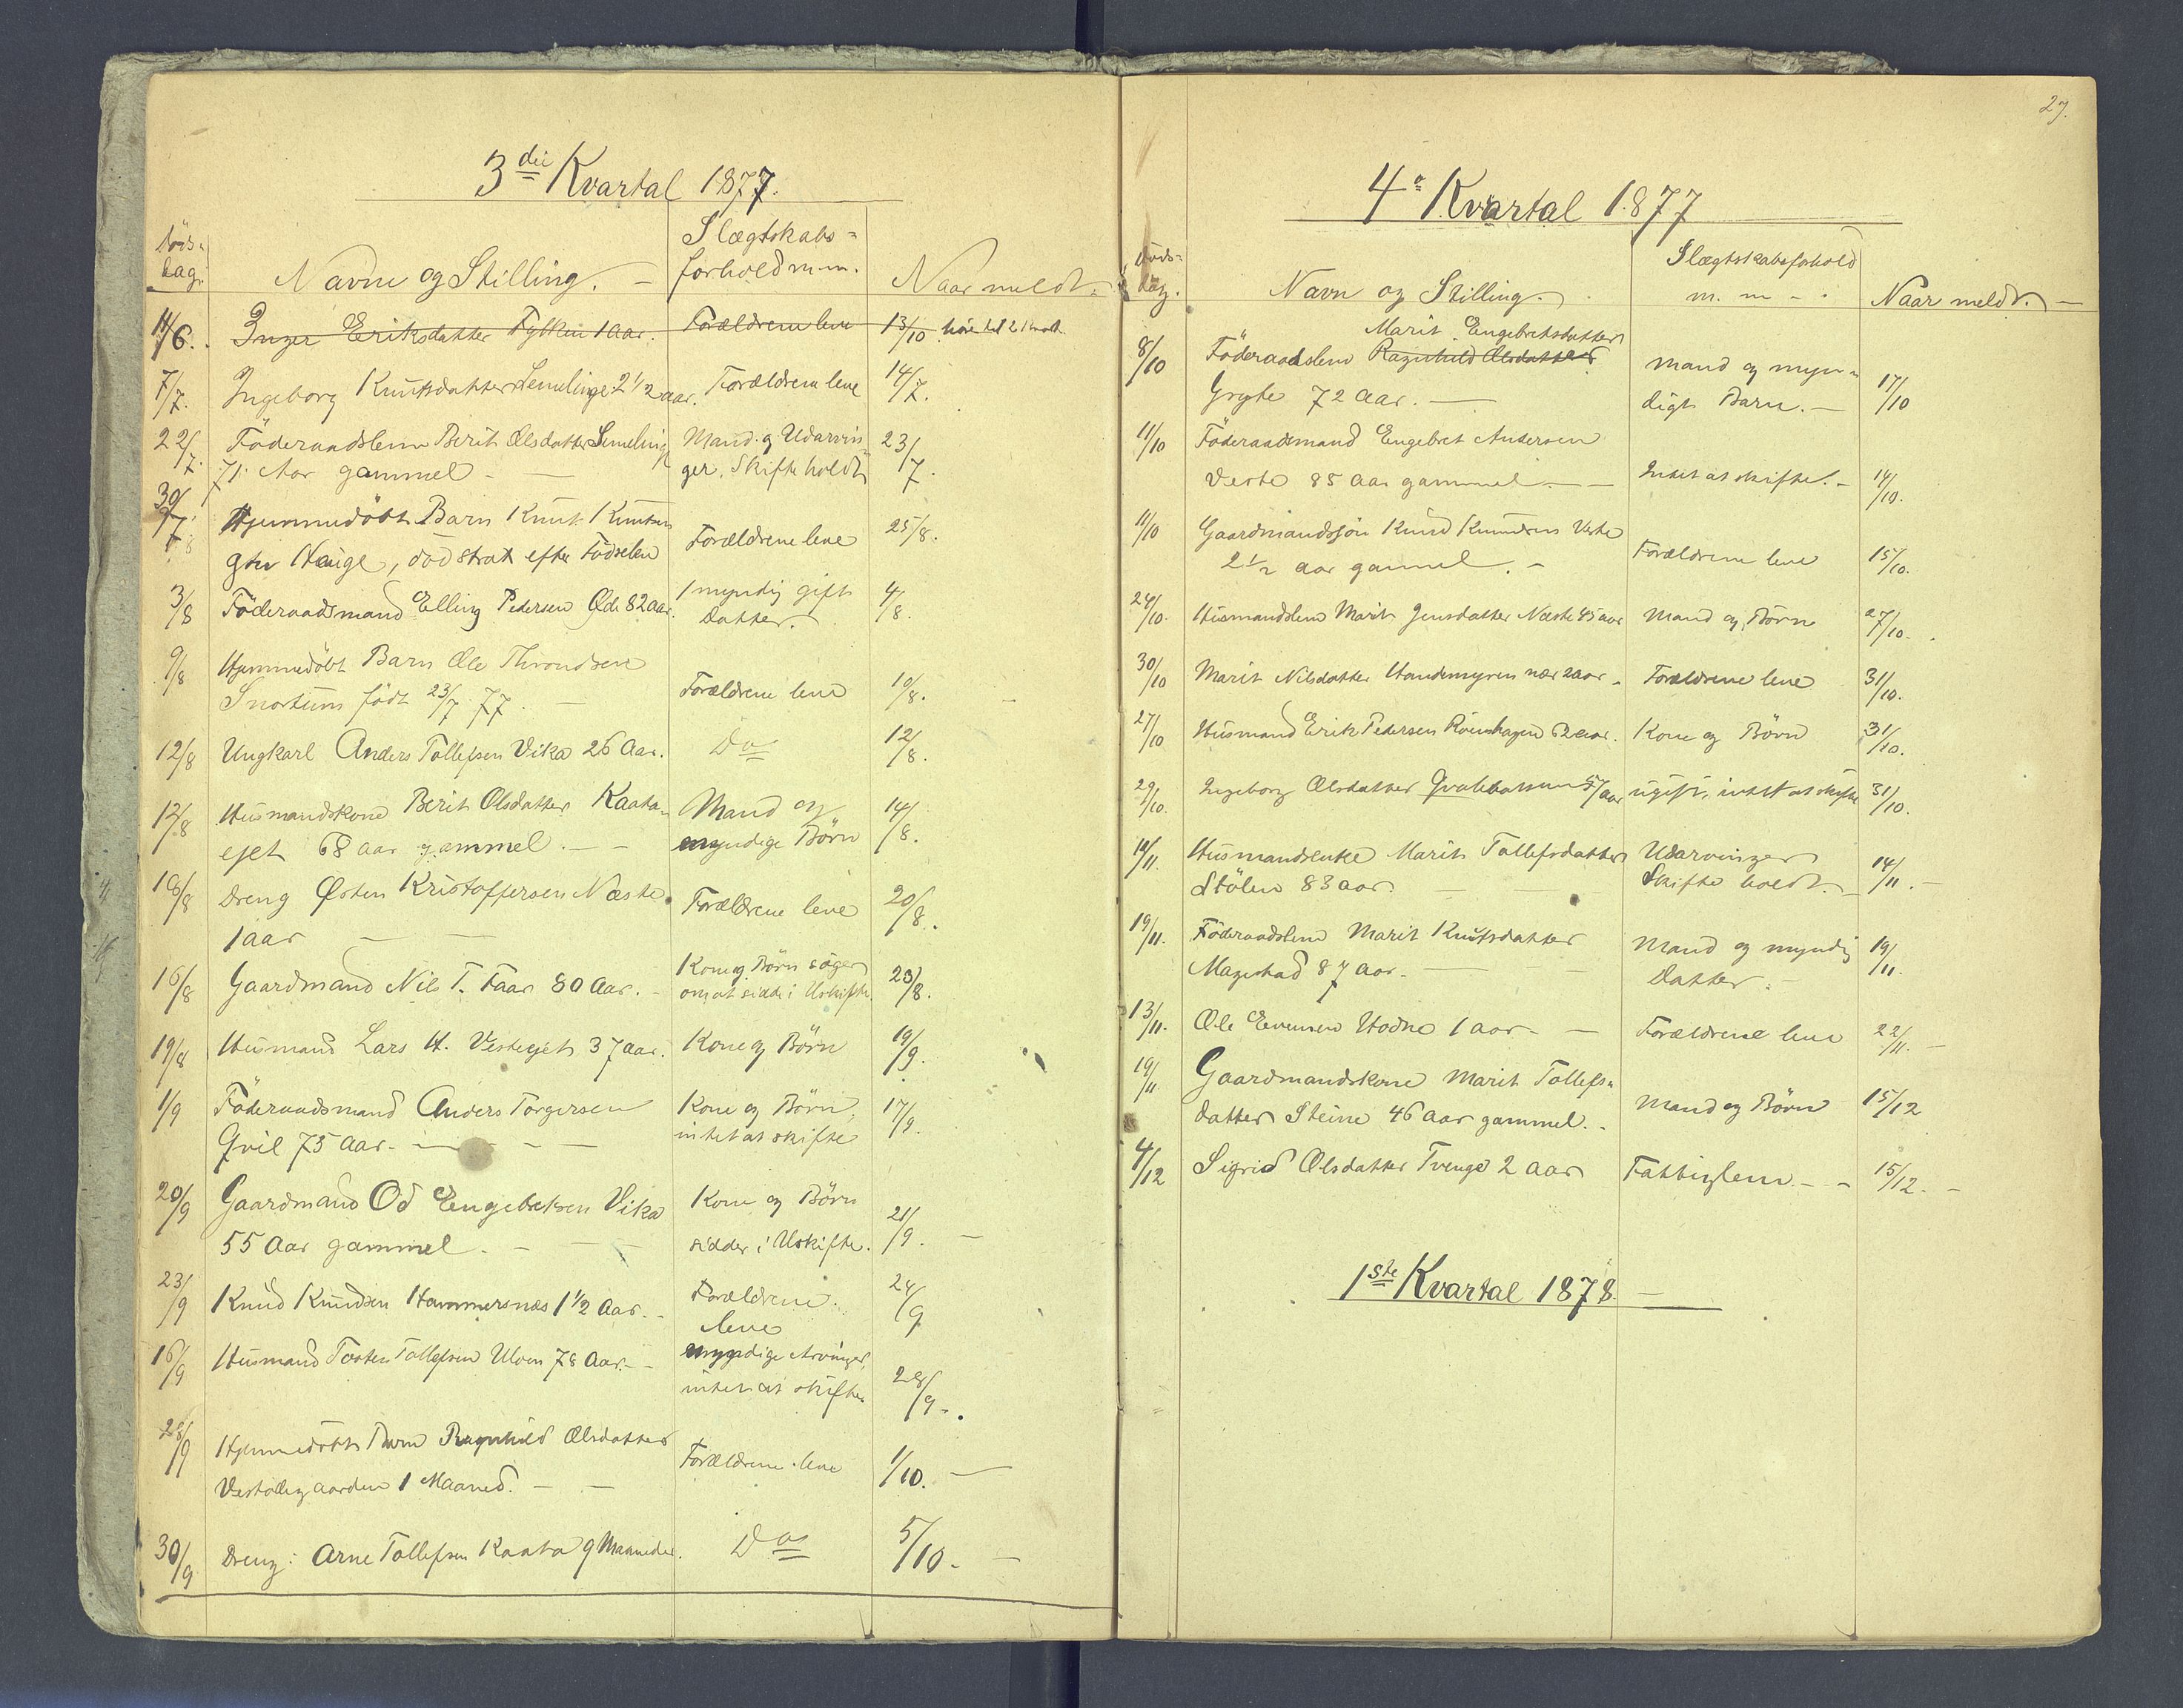 3die Kvartal 1877.
Döds-
dag.
Navne og Stilling.
Slægtskabs-
forhold m.m.
Naar meldt.
11/6. Inger Eriksdatter Fylken 1 aar. Forældrene leve 13/10 hörer til 2 Kvart.
7/7. Ingeborg Knutsdatter Semelinge 2 1/2 aar. Forældrene leve 14/7.
22/7. Föderaadslem Berit Olsdatter Semeling Mand og Udarvin-
71 Aar gammel ger, Skifte holdt 23/7.
30/7 Hjemmedöbt Barn Knut Knutsen
Hauge, död strax efter Födselen Forældrene leve 25/8.
3/8 Föderaadsmand Elling Pedersen Öde 82 aar. 1 myndig gift
Datter. 4/8.
9/8 Hjemmedöbt Barn Ole Throndsen
Snortum födt 23/7 77. Forældrene leve 10/8.
12/8 Ungkarl Anders Tollefsen Vika 26 Aar. Do 12/8.
12/8 Husmandskone Berit Olsdatter Kaata- Mand og 14/8.
ejet 68 aar gammel. myndige Börn
16/8 Dreng Østen Kristoffersen Næste
1 aar Forældrene leve 20/8.
16/8 Gaardmand Nils T. Faar 80 Aar. Kone og Börn söger
om at sidde i Uskifte. 23/8.
19/8 Husmand Lars H. Vesteejet 37 aar. Kone og Börn 19/9.
1/9 Föderaadsmand Anders Torgersen Kone og Börn, 17/9.
Qvil 75 Aar. intet at skifte
20/9 Gaardmand Od Engebretsen Vika Kone og Börn
55 Aar gammel. sidder i Uskifte. 21/9.
23/9 Knud Knudsen Hammersnæs 1 1/2 Aar. Forældrene 24/9
leve
16/9 Husmand Tosten Tollefsen Ulven 78 Aar. myndige Arvinger,
intet at skifte. 28/9.
28/9 Hjemmedöbt Barn Ragnhild Olsdatter
1 Maaned. Forældrene leve 1/10.
30/9 Dreng: Arne Tollefsen Kaata 9 Maaneder. Do 5/10.
27.
4de Kvartal 1877
Döds-
dag.
Navn og Stilling.
Slægtskabsforhold
m. m.
Naar meldt.
Marit Engebretsdatter
8/10 Föderaadslem Ragnhild Olsdatter Mand og myn-
Gryte 72 Aar. digt Barn. 17/10
11/10 Föderaadsmand Engebret Andersen
Veste 85 Aar gammel Intet at skifte. 14/10.
11/10 Gaardmandssön Knud Knudsen Veste
2 1/2 aar gammel. Forældrene leve 15/10.
24/10. Husmandslem Marit Jensdatter Næste 45 aar Mand og Börn 27/10.
30/10 Marit Nilsdatter Handemyren nær 2 aar. Forældrene leve 31/10.
27/10 Husmand Erik Pedersen Röisehagen 62 aar. Kone og Börn 31/10.
29/10. Ingeborg Olsdatter 57 aar ugift, intet at skifte 31/10.
10/11. Husmandsenke Marit Tollefsdatter Udarvinger
Stölen 83 aar. Skifte holdt. 14/11.
19/11. Föderaadslem Marit Knutsdatter Mand og myndig 19/11.
Magestad 87 Aar. Datter.
13/11. Ole Evensen Hodne 1 aar. Forældrene leve 22/11.
19/11 Gaardmandskone Marit Tollefs-
datter Steine 46 Aar gammel. Mand og Börn 15/12
4/12 Sigrid Olsdatter Tvenge 2 Aar Fattiglem. 15/12.
1ste Kvartal 1878.